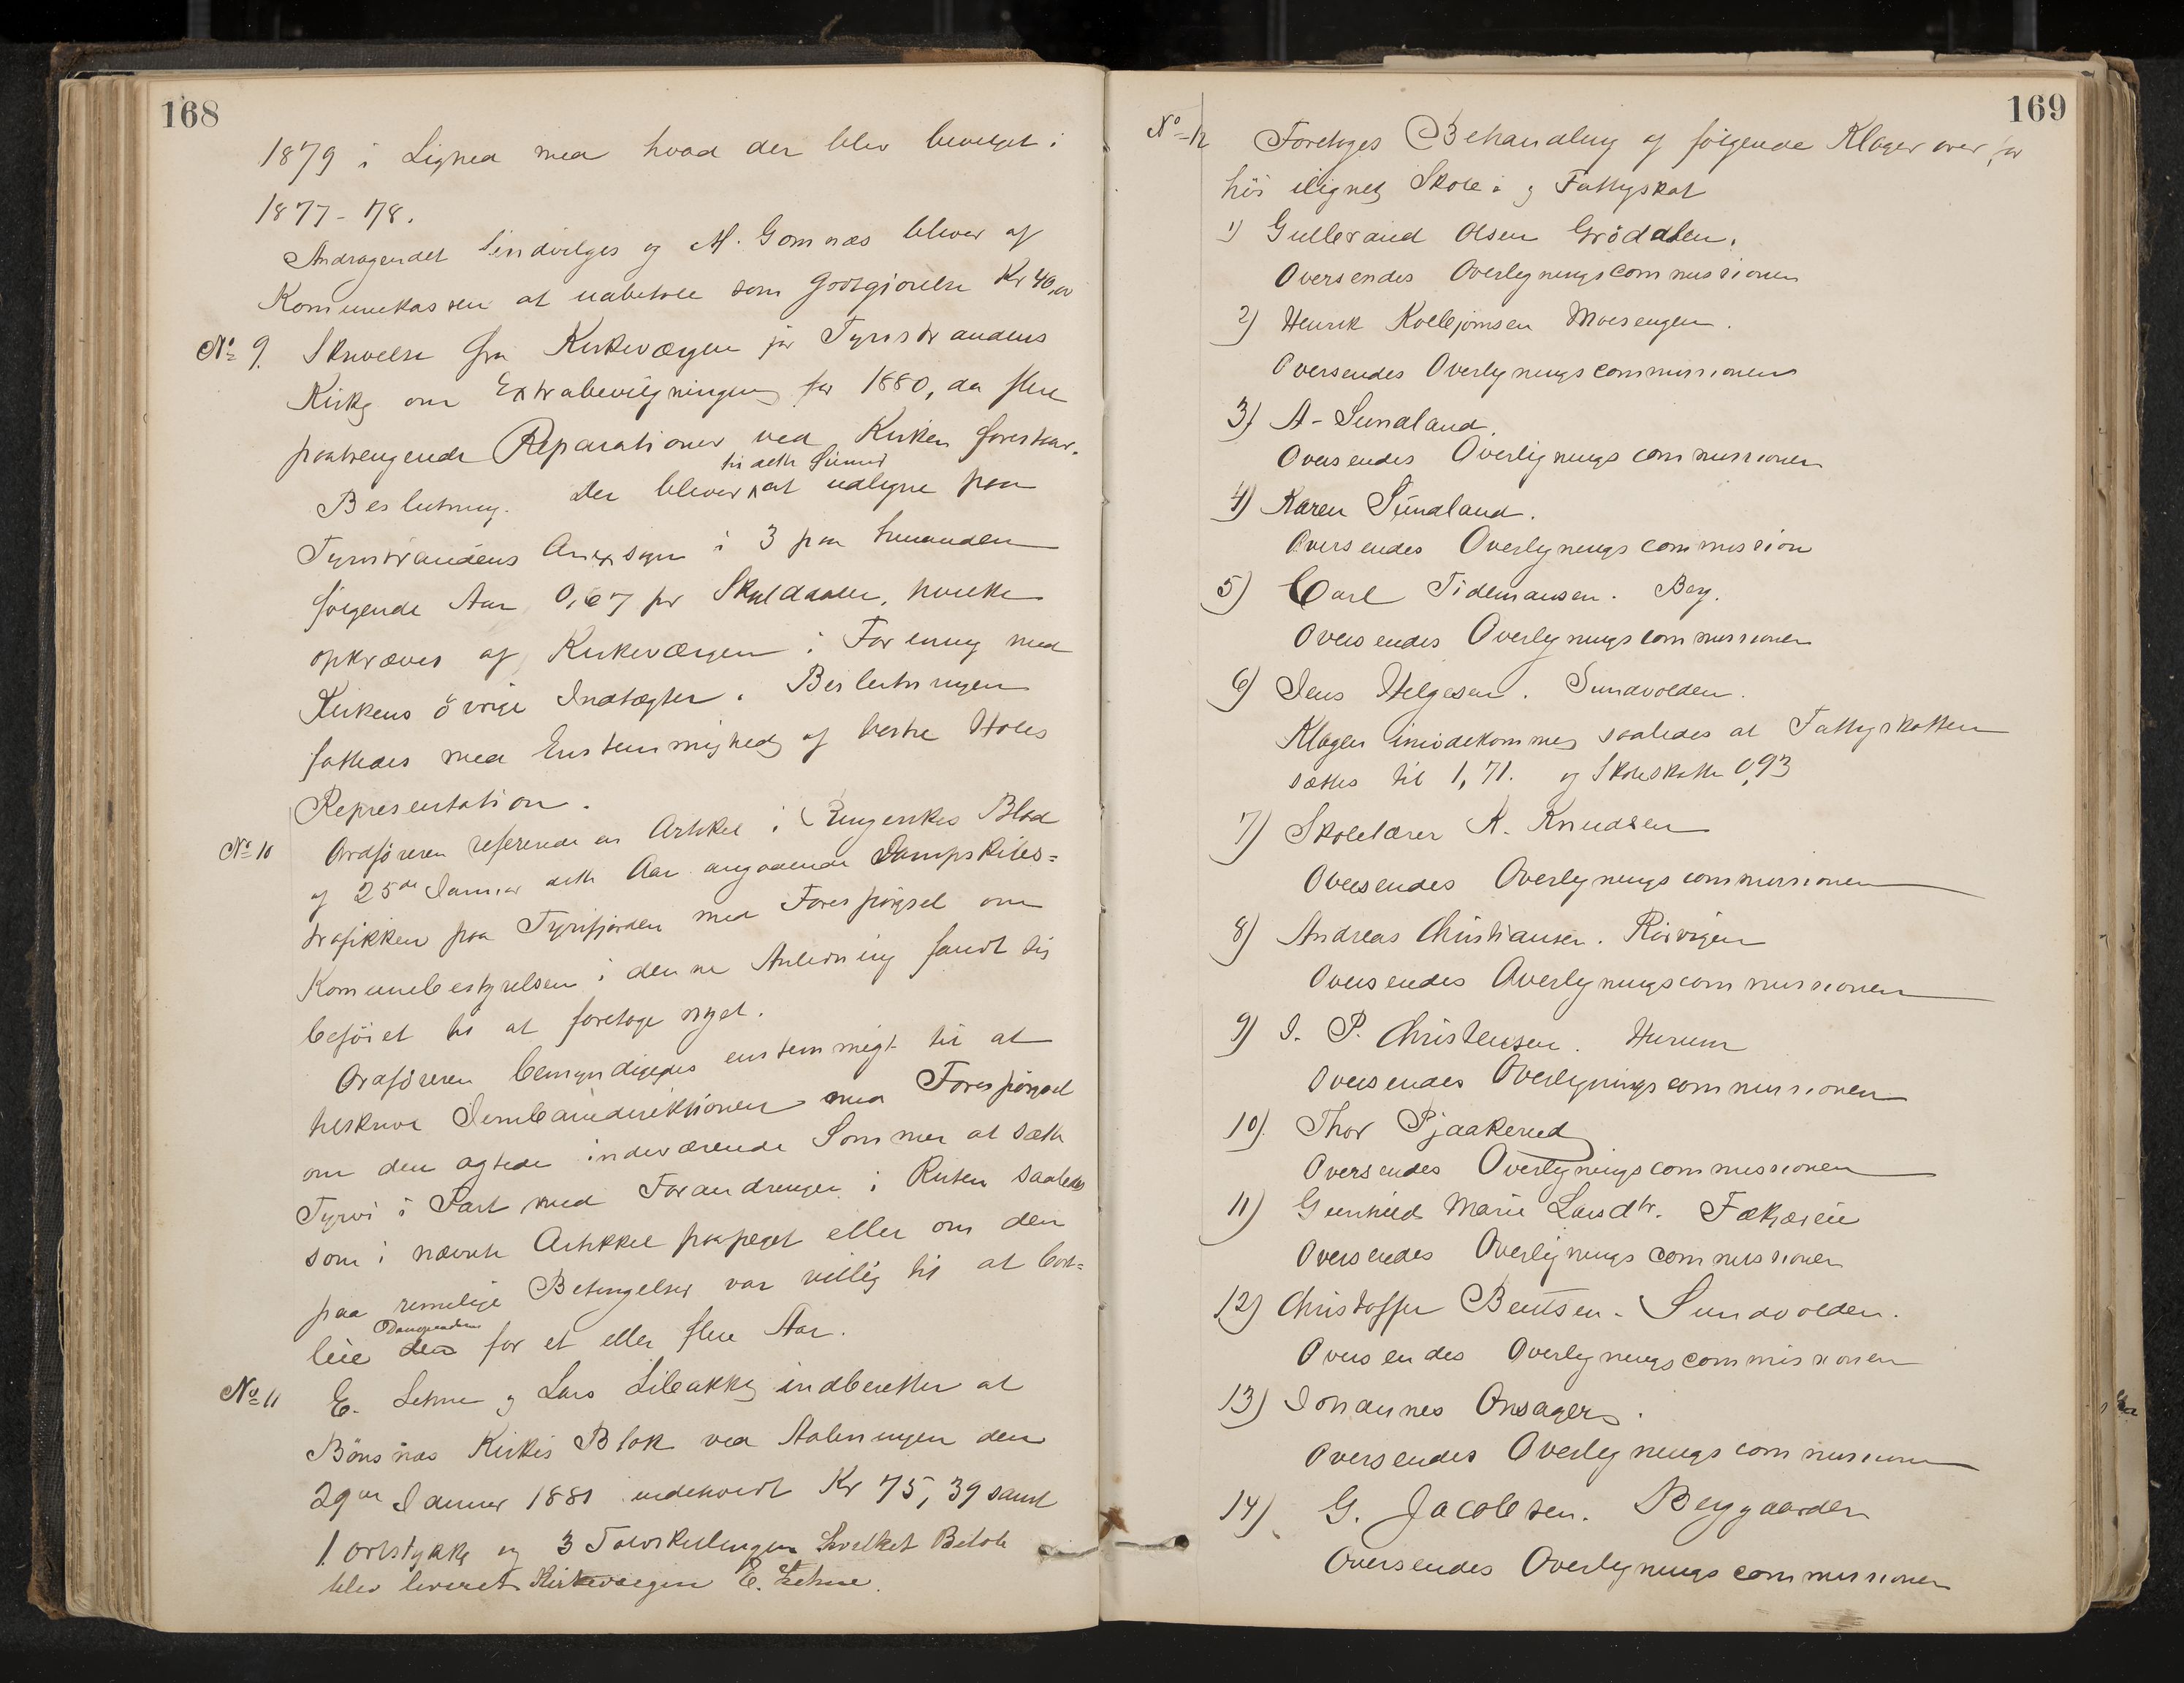 168
1879 i Lighed med hvad der blev bevilget i
1877-78.
Andragendet indvilges og M. Gomnæs bliver af
Komunekassen at udbetale som Godtgjörelse Kr 40,00
No 9. Skrivelse fra Kirkeværgen for Tyristrandens
Kirke om Extrabevilgninger for 1880, da flere
paatrengende Reparationer ved Kirken forestaar.
Beslutning. Der bliver til dette at udligne paa
Tyristrandens Anexsogn i 3 paa hinanden
fölgende Aar 0,67 pr Skylddaler, hvilke
opkræves af Kirkeværgen i Forening med
Kirkens övrige Indtægter. Beslutningen
fattedes med Enstemmighed af Holes
Representation.
No 10 Ordföreren refererede en Artikel i Ringerikes Blad
af 25de Januar dette Aar angaaende Dampskibs=
trafikken paa Tyrifjorden med Forespörgsel om
Komunebestyrelsen i denne Anledning fandt sig
beföiet til at foretage noget.
Ordföreren bemyndigedes enstemmigt til at
tilskrive Jernbanedirektionen med Forespörgsel
om den agtede indeværende Sommer at sætte
Tyrvi i Fart med Forandringer i Ruten saaledes
som i nævnte Artikkel paapeget eller om den
paa rimelige Betingelser var villig til at bort=
leie den for et eller flere Aar.
No 11 E. Lehne og Lars Libakke indberetter at
Bönsnæs Kirkes Blok ved Aabningen den
29de Januar 1881 indeholdt Kr 75,39 samt
1 ortstykke og 3 Tolvskillinger hvilket Belöb
blev leveret Kirkeværgen E. Lehne.
169
No 12 Foretoges Behandling af fölgende Klager over for
höi ilignet Skole- og Fattigskat
1) Gulbrand Olsen Grödalen.
Oversendes Overligningscommissionen
2) Henrik Kolbjörnsen Moesengen.
Oversendes Overligningscommissionen
3) A. Sundland.
Oversendes Overligningscommissionen
4) Karen Sundland.
Oversendes Overligningscommission
5) Carl Tidemansen. Berg.
Oversendes Overligningscommissionen
6) Jens Helgesen. Sundvolden.
Klagen imödekommes saaledes at Fattigskatten
sættes til 1,71. og Skoleskatten 0,93
7) Skolelærer K. Knudsen
Oversendes Overligningscommissionen
8) Andreas Christiansen. Rörvigen
Oversendes Overligningscommissionen
9) I. P. Christensen. Hurum
Oversendes Overligningscommissionen
10) Thor Pjaakerud
Oversendes Overligningscommissionen
11) Gunhild Marie Larsdtr. Fækjæreie
Oversendes Overligningscommissionen
12) Christoffer Bentsen - Sundvolden.
Oversendes Overligningscommissionen
13) Johannes Onsager.
Oversendes Overligningscommissionen
14) G. Jacobsen. Byggaarden
Oversendes Overligningscommissionen